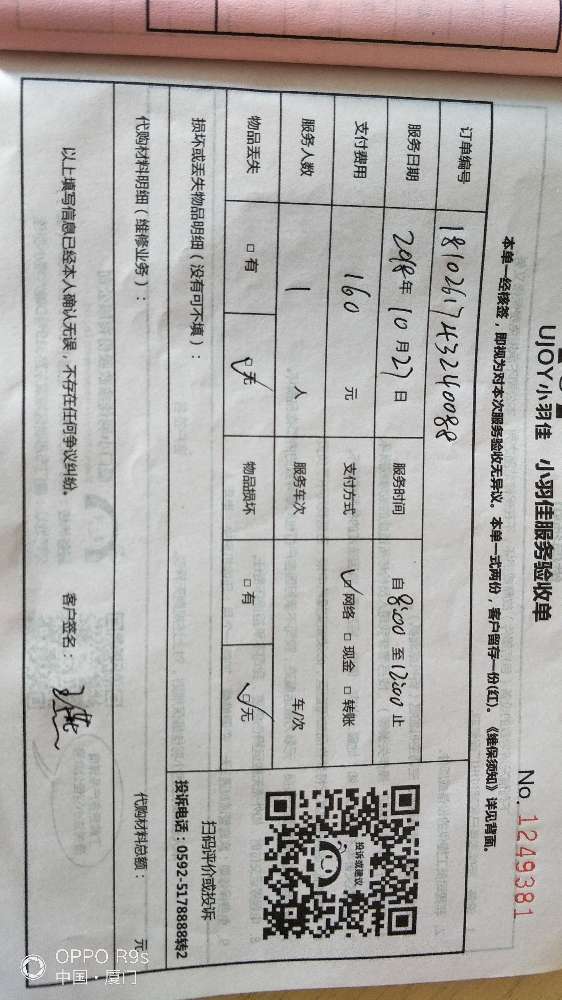 UJOY小羽佳 小羽佳服务验收单
No. 1249381
本单一经核签，即视为对本次服务验收无异议。本单一式两份，客户留存一份(红)。《维保须知》详见背面。
订单编号 1810261743240088
服务日期 2018年10月27日 服务时间 自8:00至12:00止
支付费用 160元 支付方式 ☑网络 □现金 □转账
服务人数 1人 服务车次 车/次
物品丢失 □有 ☑无 物品损坏 □有 ☑无
投诉或建议
扫码评价或投诉
投诉电话：0592-5178888转2
损坏或丢失物品明细（没有可不填）：
代购材料明细（维修业务）：
代购材料总额： 元
以上填写信息已经本人确认无误，不存在任何争议纠纷。 客户签名：
OPPO R9s
中国·厦门